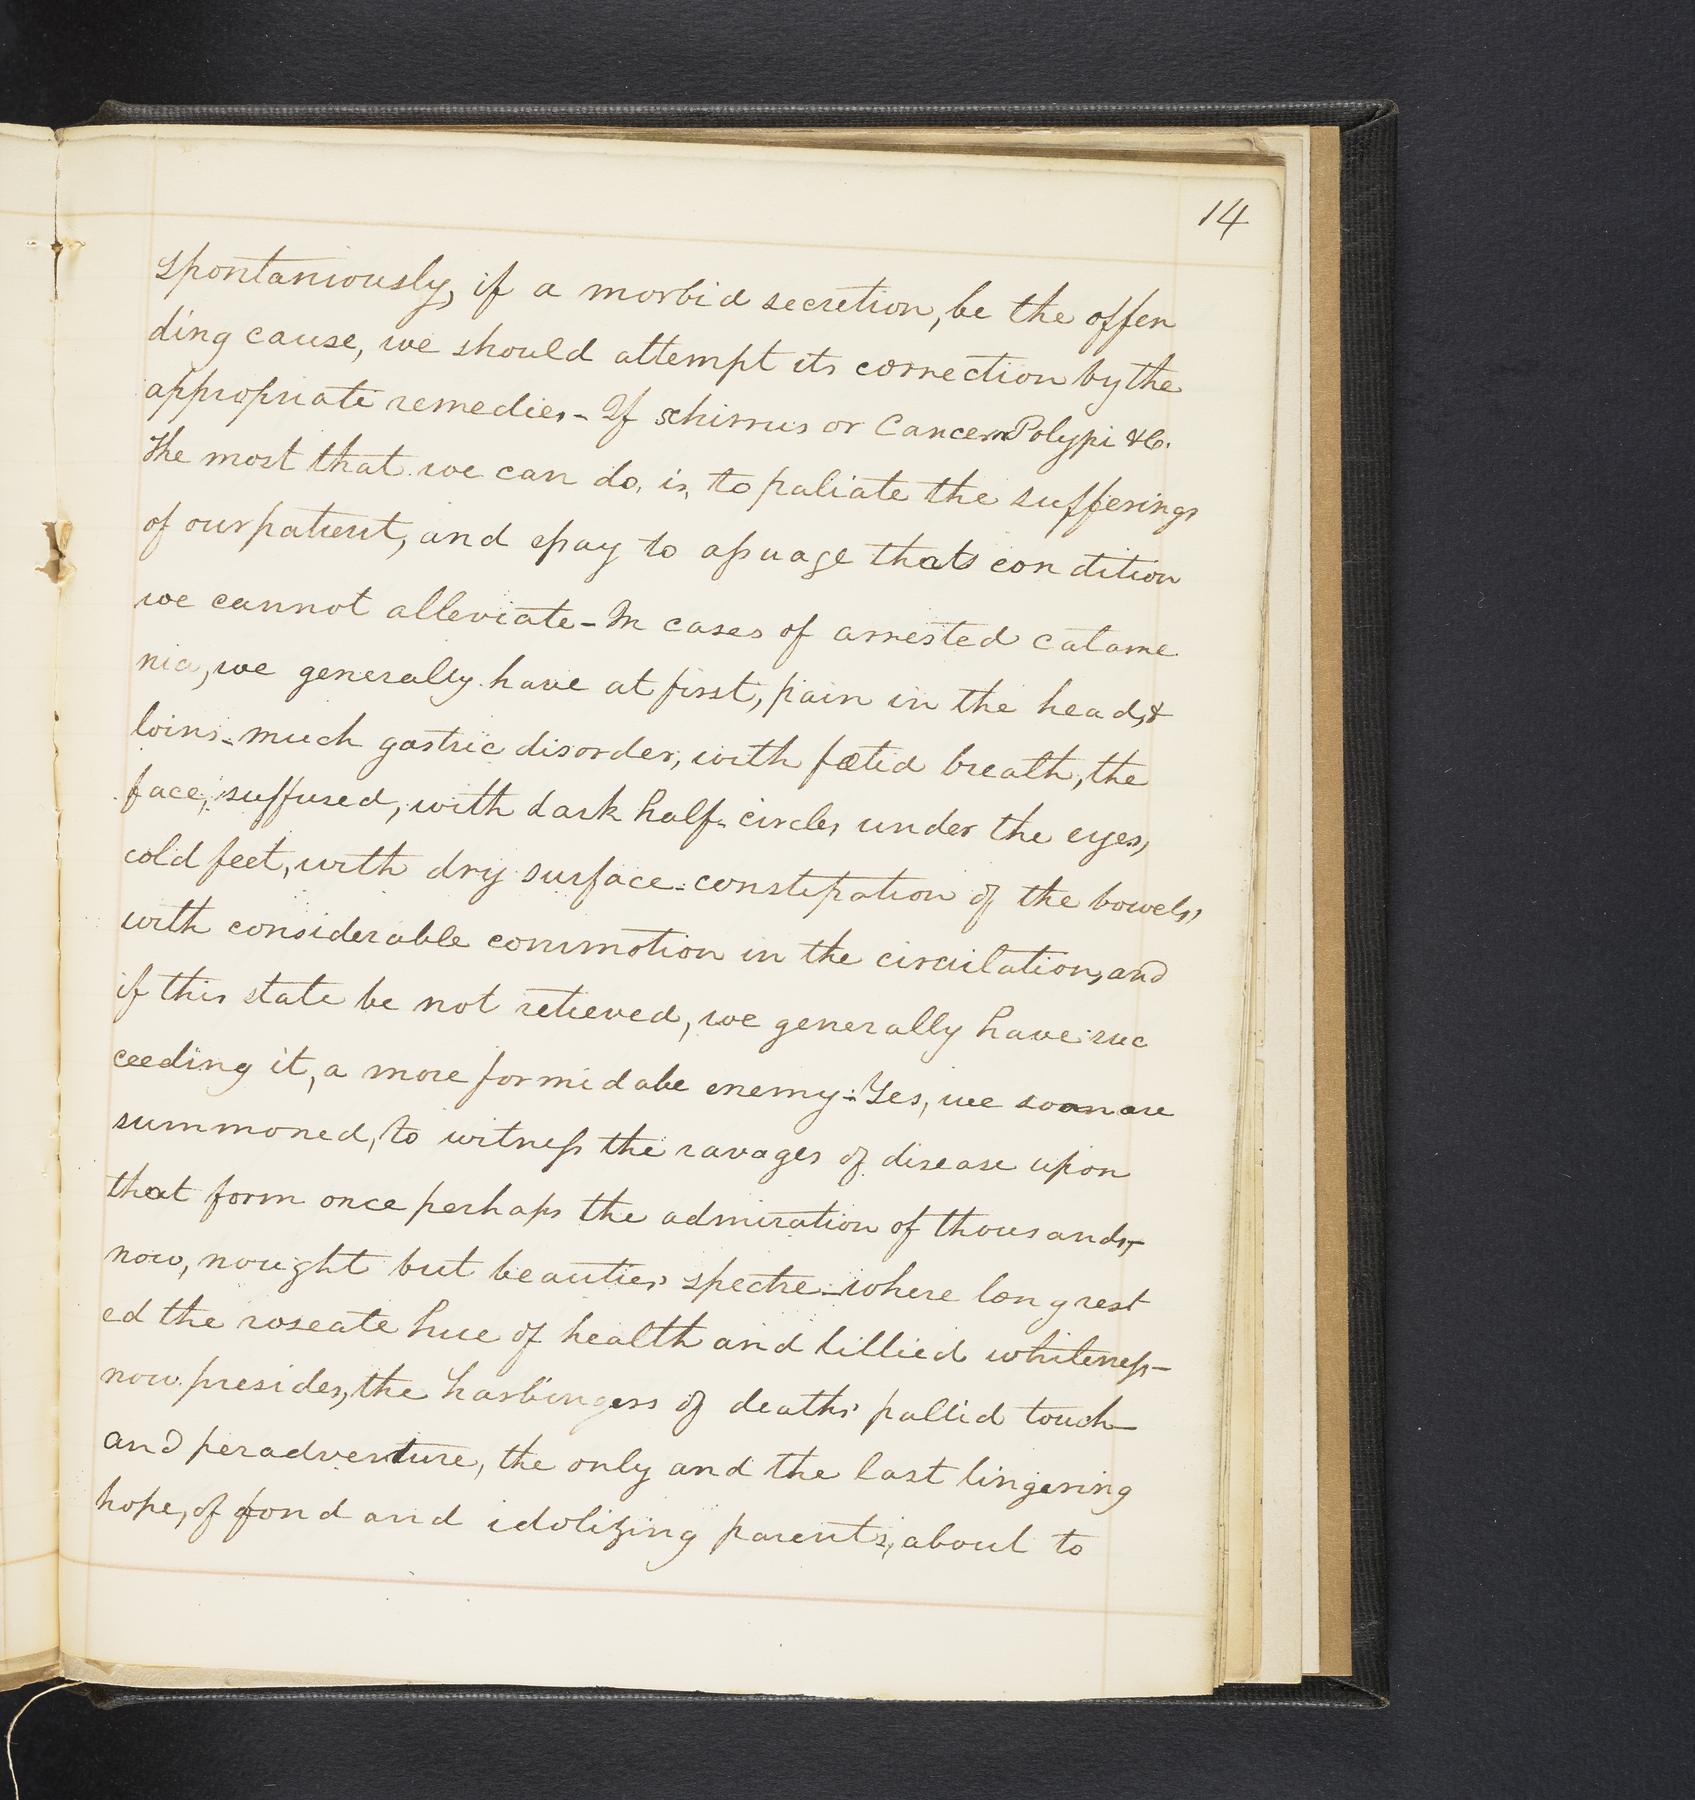 14
spontaniously, if a morbid secretion, be the offen
ding cause, we should attempt its correction by the
appropriate remedies - If schirrus or Cancer or Polypi &C.
The most that we can do, is, to paliate the sufferings
of our patient, and essay to assuage that condition
we cannot alleviate - In cases of arrested catame
nia, we generally have at first, pain in the head, &
loins - much gastric disorder, with fœtid breath, the
face, suffused, with dark half-circles under the eyes,
cold feet, with dry surface - constipation of the bowels,
with considerable commotion in the circulation, and
if this state be not retieved, we generally have suc
ceeding it, a more formidabe enemy - Yes, we soon are
summoned, to witness the ravages of disease upon
that form once perhaps the admiration of thousands, -
now, nought but beauties spectre - where long rest
ed the roseate hue of health and lillied whiteness -
now presides, the harbingers of deaths pallid touch -
and peradventure, the only and the last lingering
hope, of fond and idolizing parents, about to